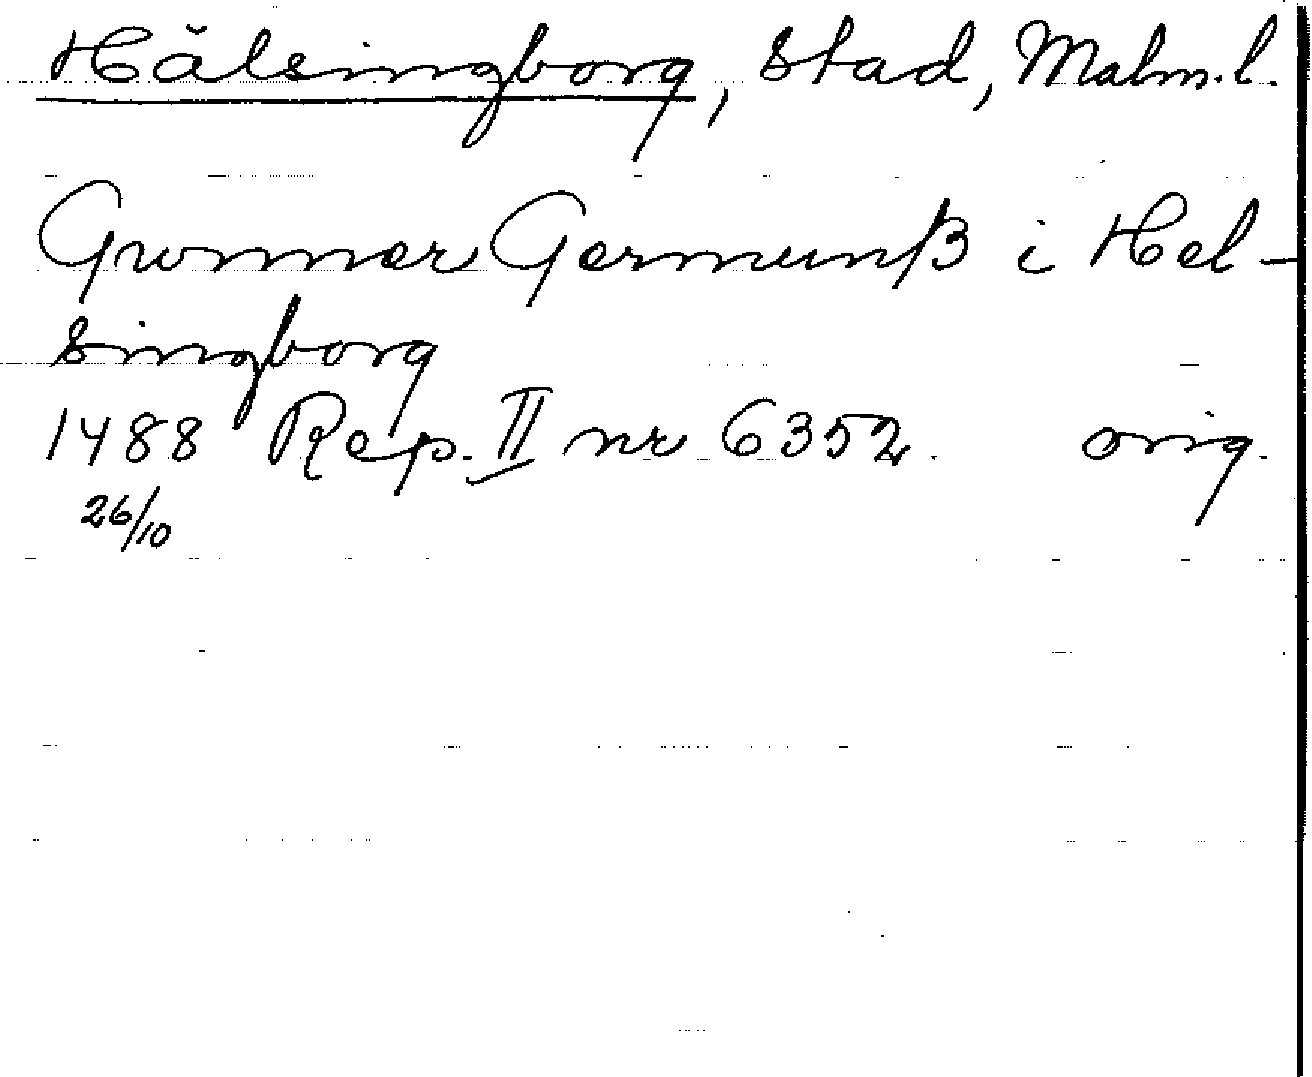 Hälsingborg, Stad, Malm.l.
Grommer Germunß i Hel-
singborg
1488 Rep. II nr 6352. orig.
26/10